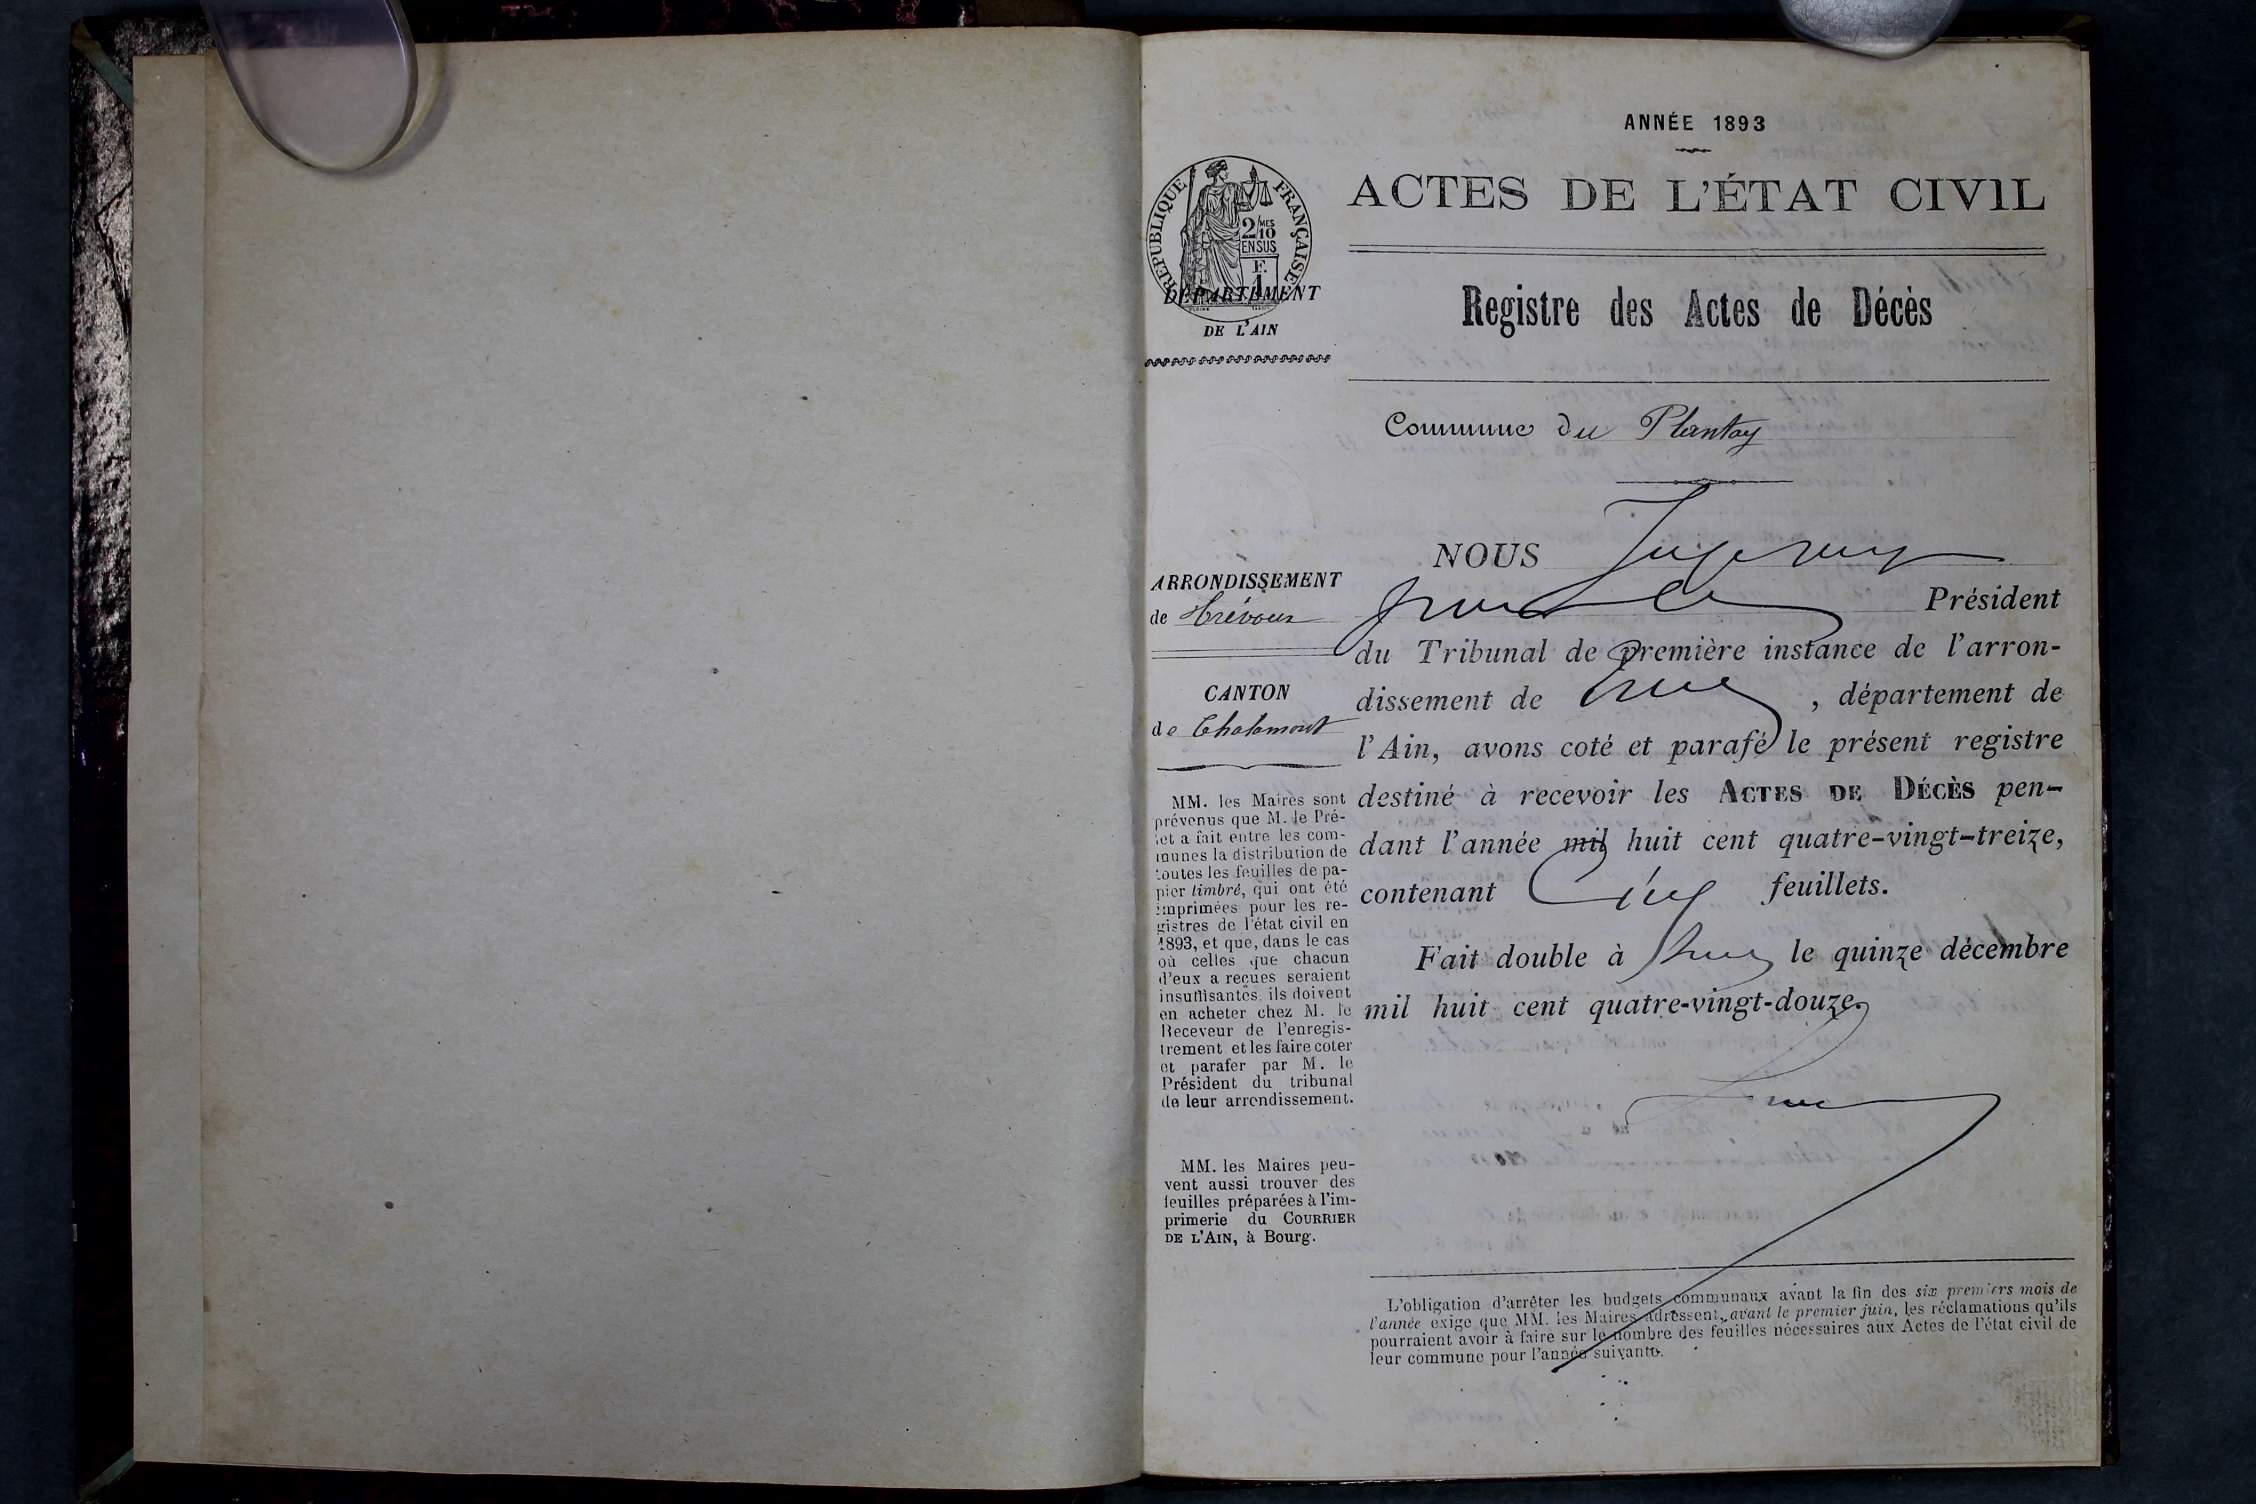 ANNÉE 1893
ACTES DE L'ÉTAT CIVIL
RÉPUBLIQUE FRANÇAISE
2/10 MES
EN SUS
F.
1
DÉPARTEMENT
DE L'AIN
Registre des Actes de Décès
Commune du Plantay
ARRONDISSEMENT
de Trévoux
CANTON
de Chalamont
MM. les Maires sont
prévenus que M. le Pré-
fet a fait entre les com-
munes la distribution de
toutes les feuilles de pa-
pier timbré, qui ont été
imprimées pour les re-
gistres de l'état civil en
1893, et que, dans le cas
où celles que chacun
d'eux a reçues seraient
insuffisantes, ils doivent
en acheter chez M. le
Receveur de l'enregis-
trement et les faire coter
et parafer par M. le
Président du tribunal
de leur arrondissement.
MM. les Maires peu-
vent aussi trouver des
feuilles préparées à l'im-
primerie du COURRIER
DE L'AIN, à Bourg.
NOUS Juge
Président
du Tribunal de première instance de l'arron-
dissement de , département de
l'Ain, avons coté et parafé le présent registre
destiné à recevoir les ACTES DE DÉCÈS pen-
dant l'année mil huit cent quatre-vingt-treize,
contenant Cinq feuillets.
Fait double à le quinze décembre
mil huit cent quatre-vingt-douze.
L'obligation d'arrêter les budgets communaux avant la fin des six premiers mois de
l'année exige que MM. les Maires adressent, avant le premier juin, les réclamations qu'ils
pourraient avoir à faire sur le nombre des feuilles nécessaires aux Actes de l'état civil de
leur commune pour l'année suivante.